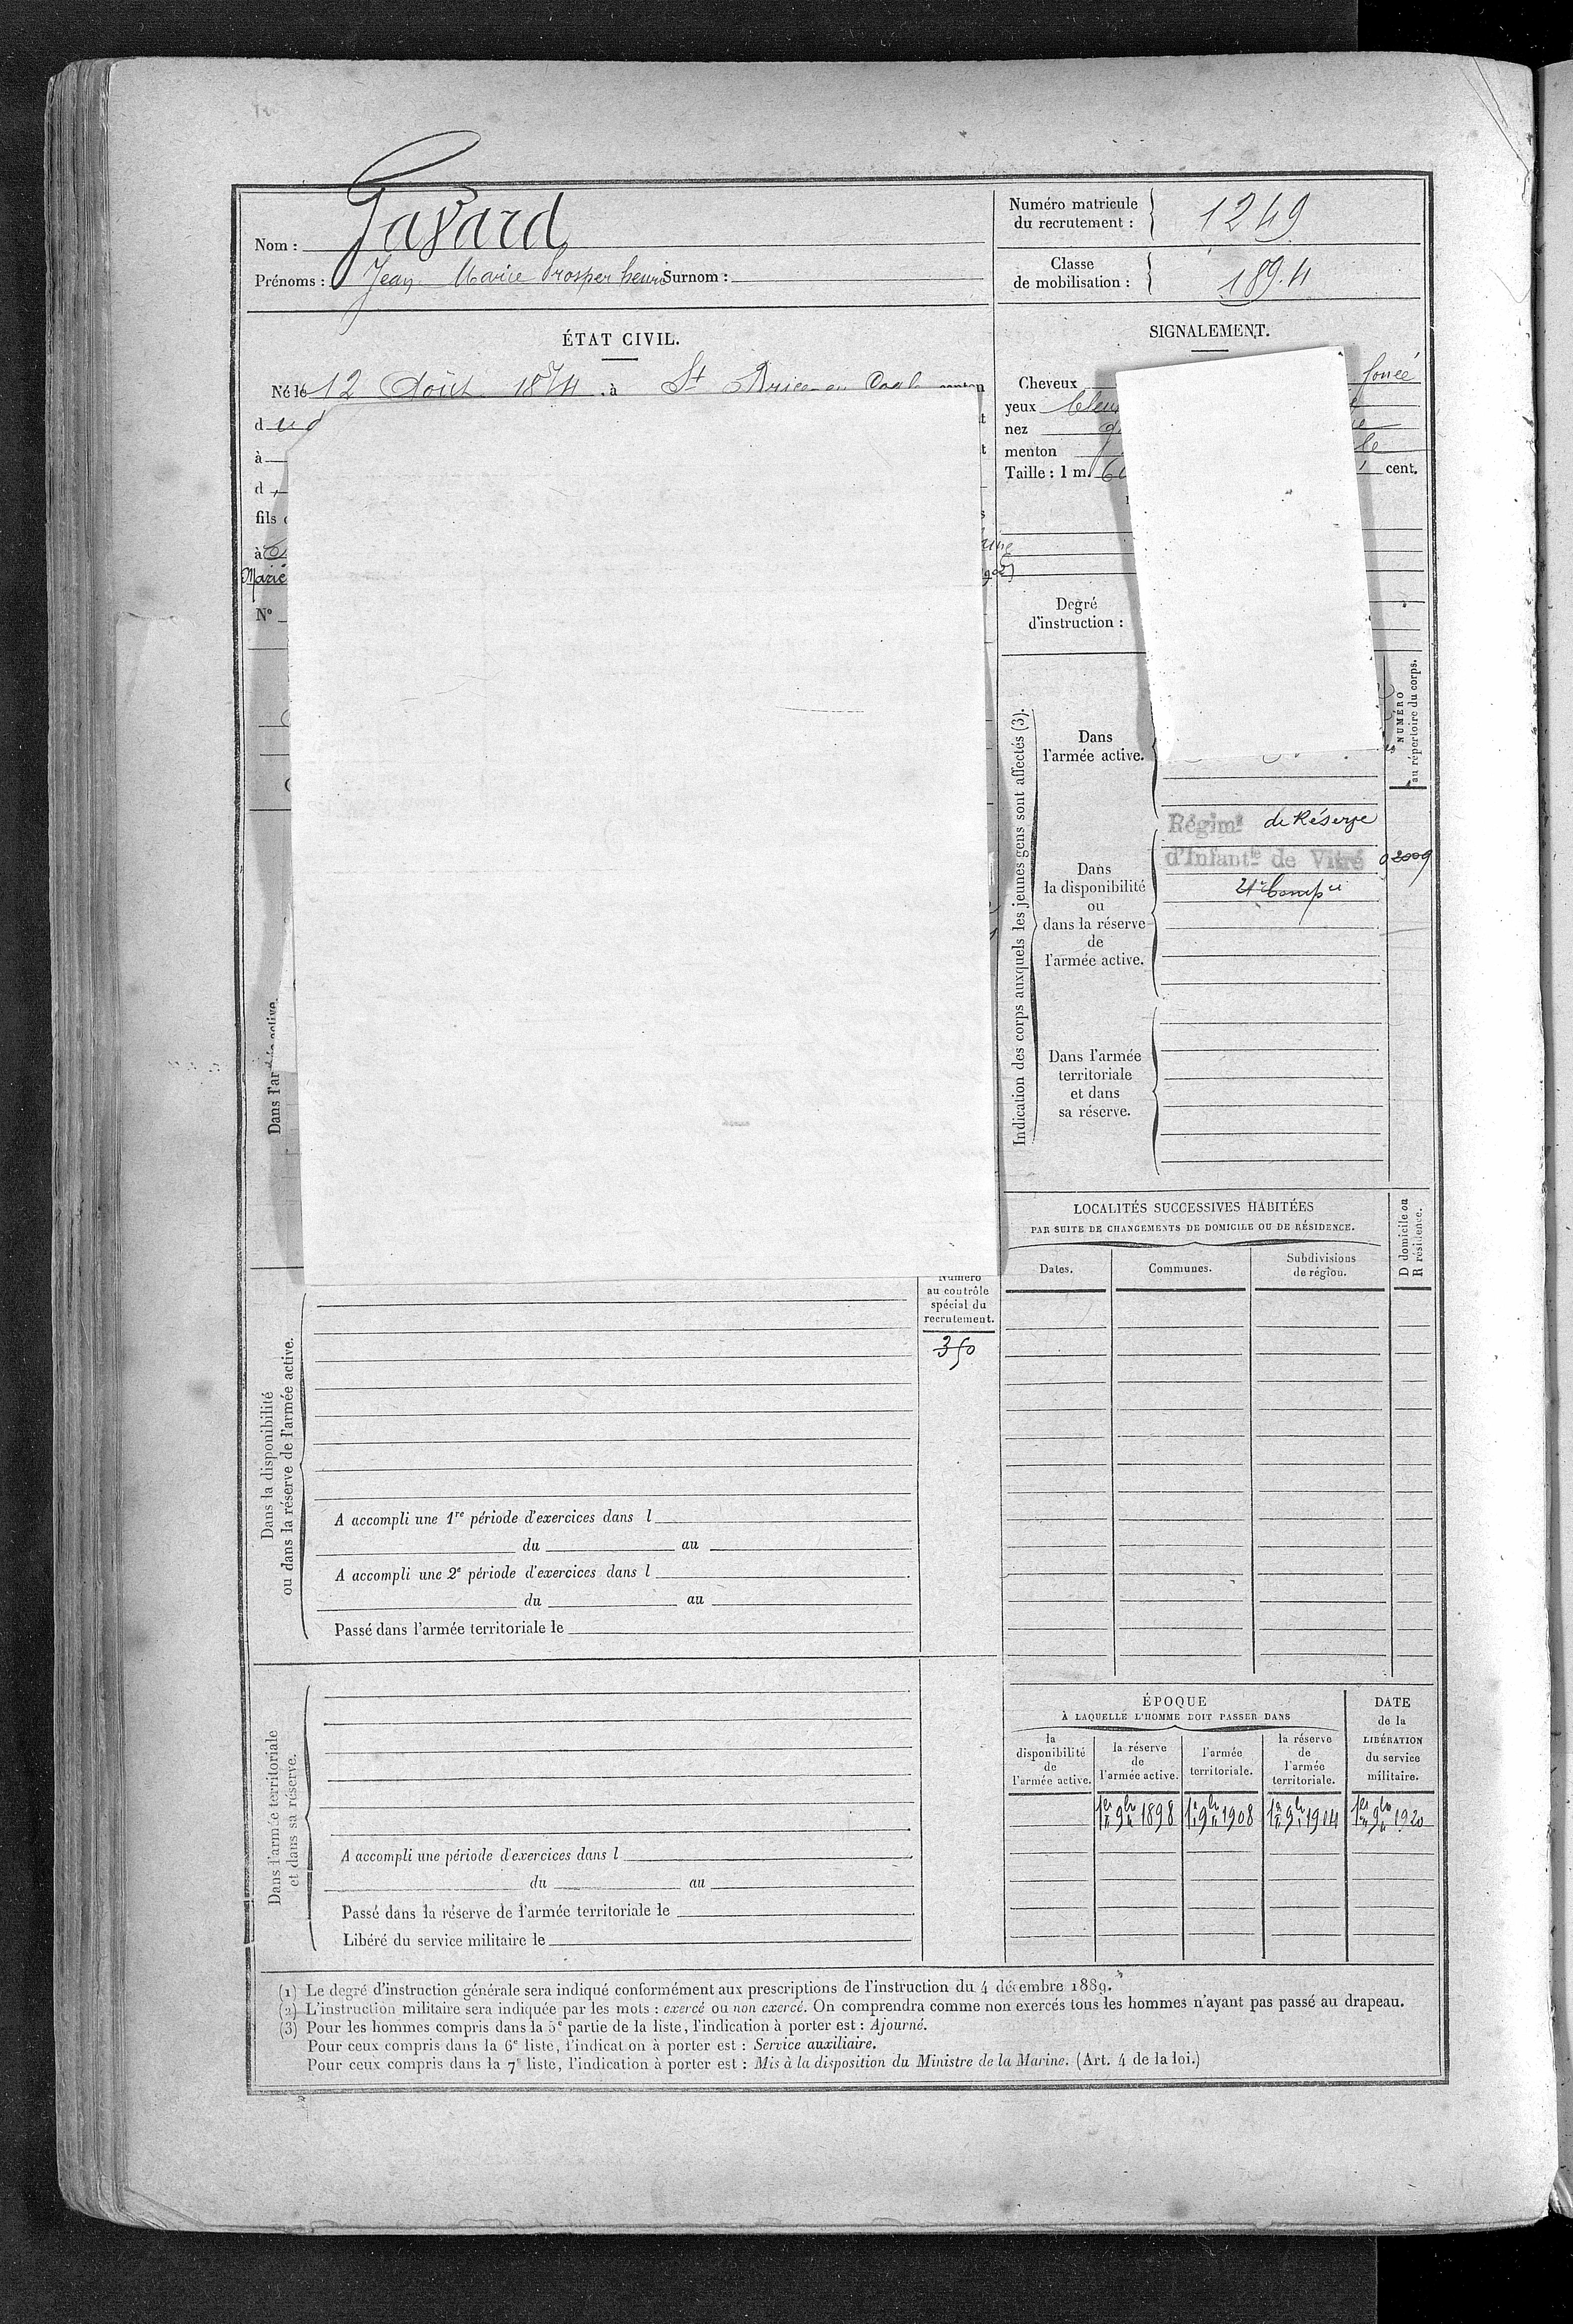 Nom : Gavard
Prénoms : Jean Marie Prosper henri Surnom :
Numéro matricule
du recrutement :
1249
Classe
de mobilisation :
1894
ÉTAT CIVIL.
Né le 12 Août 1874, à St Brice en Cogl canton
d
à
d
fils
à
Marié
N°
SIGNALEMENT.
Cheveux foncé
yeux bleus
nez
menton
Taille : 1 m. cent.
Degré
d'instruction :
Indication des corps auxquels les jeunes gens sont affectés (3).
Dans
l'armée active.
NUMÉRO
au répertoire du corps.
Dans
la disponibilité
ou
dans la réserve
de
l'armée active.
Régimt de Réserve
d'Infantie de Vitré
4e Compie
Dans l'armée
territoriale
et dans
sa réserve.
LOCALITÉS SUCCESSIVES HABITÉES
PAR SUITE DE CHANGEMENTS DE DOMICILE OU DE RÉSIDENCE.
D domicile ou
R résidence.
Dates.
Communes.
Subdivisions
de région.
Numéro
au contrôle
spécial du
recrutement.
350
Dans la disponibilité
ou dans la réserve de l'armée active.
A accompli une 1re période d'exercices dans l
du au
A accompli une 2e période d'exercices dans l
du au
Passé dans l'armée territoriale le
Dans l'armée territoriale
et dans sa réserve.
A accompli une période d'exercices dans l
du au
Passé dans la réserve de l'armée territoriale le
Libéré du service militaire le
ÉPOQUE
À LAQUELLE L'HOMME DOIT PASSER DANS
la
disponibilité
de
l'armée active.
la réserve
de
l'armée active.
l'armée
territoriale.
la réserve
de
l'armée
territoriale.
DATE
de la
LIBÉRATION
du service
militaire.
1er 9bre 1898
1er 9bre 1908
1er 9bre 1914
1er 9bre 1920
(1) Le degré d'instruction générale sera indiqué conformément aux prescriptions de l'instruction du 4 décembre 1889.
(2) L'instruction militaire sera indiquée par les mots : exercé ou non exercé. On comprendra comme non exercés tous les hommes n'ayant pas passé au drapeau.
(3) Pour les hommes compris dans la 5e partie de la liste, l'indication à porter est : Ajourné.
Pour ceux compris dans la 6e liste, l'indication à porter est : Service auxiliaire.
Pour ceux compris dans la 7e liste, l'indication à porter est : Mis à la disposition du Ministre de la Marine. (Art. 4 de la loi.)